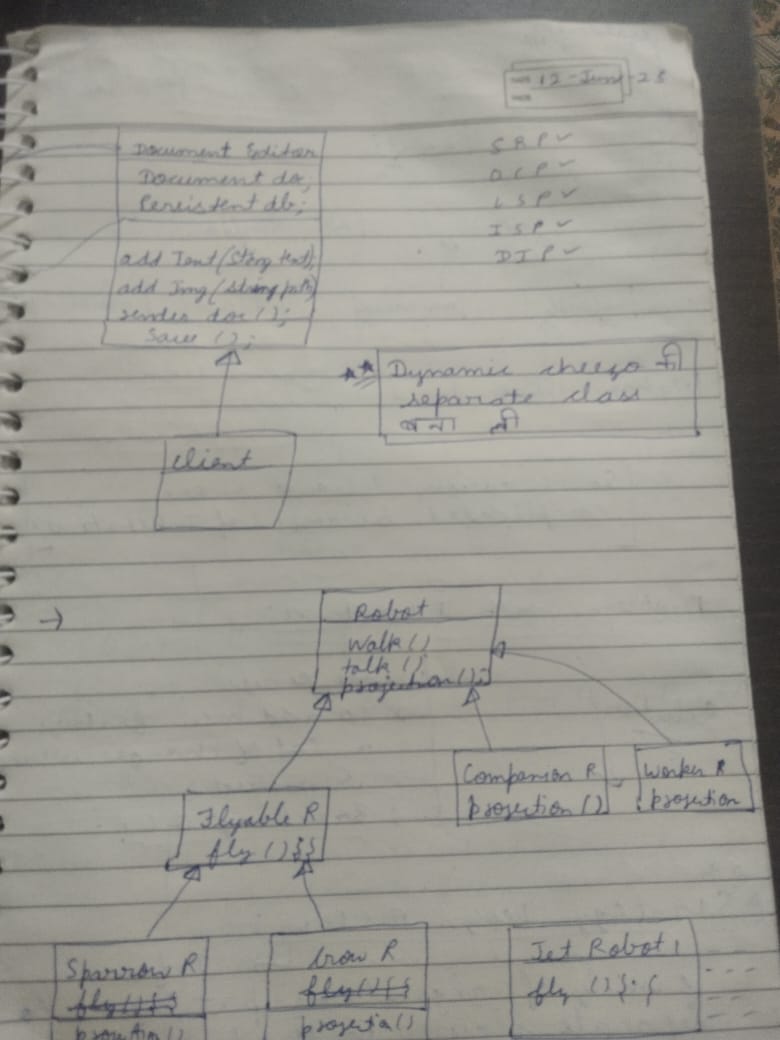 12-June-25
Document Editor
Document doc;
Persistent db;
add Text(String text);
add Img(string path)
render doc();
Save ();
SRP ✓
OCP ✓
LSP ✓
ISP ✓
DIP ✓
** Dynamic cheezo की
separate class
बना ली
Client
→
Robot
Walk ()
talk ()
projection();
Flyable R
fly () {}
Companion R
projection ()
Worker R
projection
Sparrow R
fly() {}
projection()
Crow R
fly() {}
projection()
Jet Robot
fly () {}